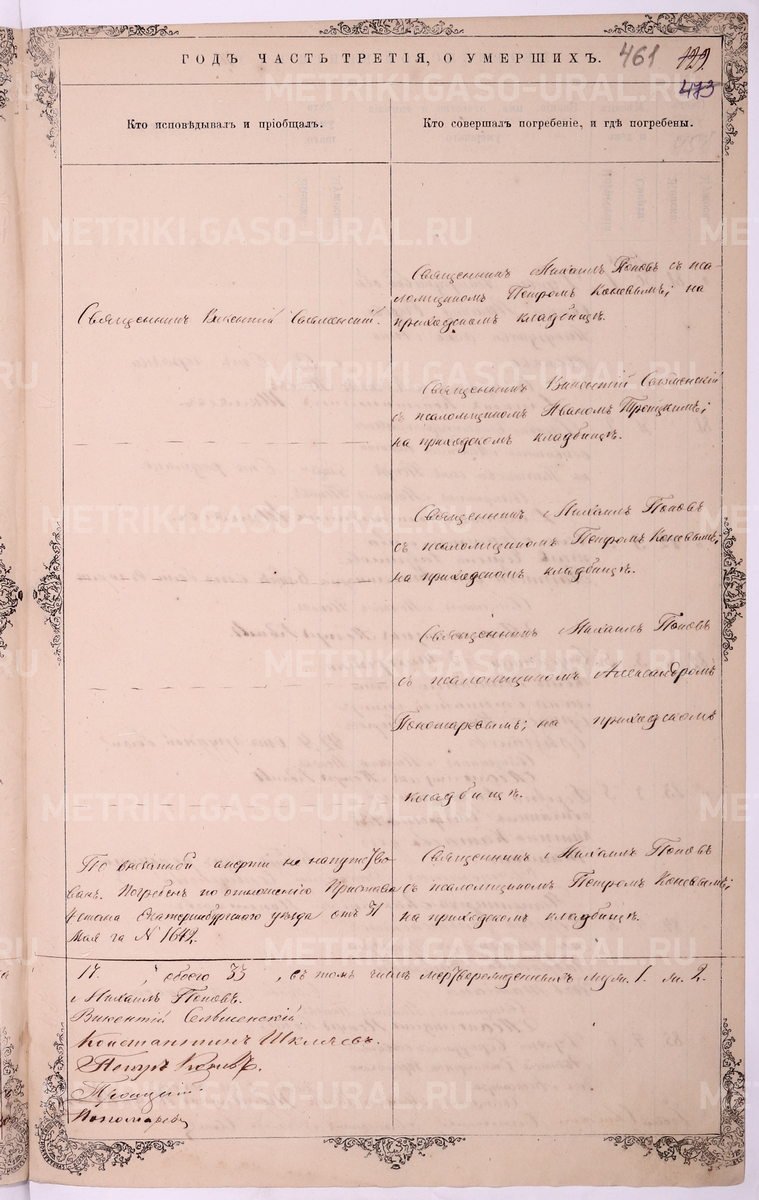 ГОДЪ ЧАСТЬ ТРЕТІЯ, О УМЕРШИХЪ.
461
473
Кто исповѣдывалъ и пріобщалъ.
Кто совершалъ погребеніе, и гдѣ погребены.
METRIKI.GASO-URAL.RU
Священникъ Викентій
Священникъ Михаилъ Поповъ съ пса-
ломщикомъ Петромъ Коновымъ; на
приходскомъ кладбищѣ.
Священникъ Викентій
съ псаломщикомъ Иваномъ Троицкимъ;
на приходскомъ кладбищѣ.
Священникъ Михаилъ Поповъ
съ псаломщикомъ Петромъ Коновымъ;
на приходскомъ кладбищѣ.
Священникъ Михаилъ Поповъ
съ псаломщикомъ Александромъ
Пономаревымъ; на приходскомъ
кладбищѣ.
По внезапной смерти не напутство-
ванъ. Погребенъ по отношенію Пристава
4 стана Екатеринбургского уѣзда отъ 31
Мая за № 1642.
Священникъ Михаилъ Поповъ
съ псаломщикомъ Петромъ Коновымъ;
на приходскомъ кладбищѣ.
17. обоего 33, въ томъ числѣ мертворожденныхъ муж. 1. ж. 2.
Михаилъ Поповъ.
Викентій
Константинъ Шкляевъ.
Петръ
Троицкій
Пономаревъ